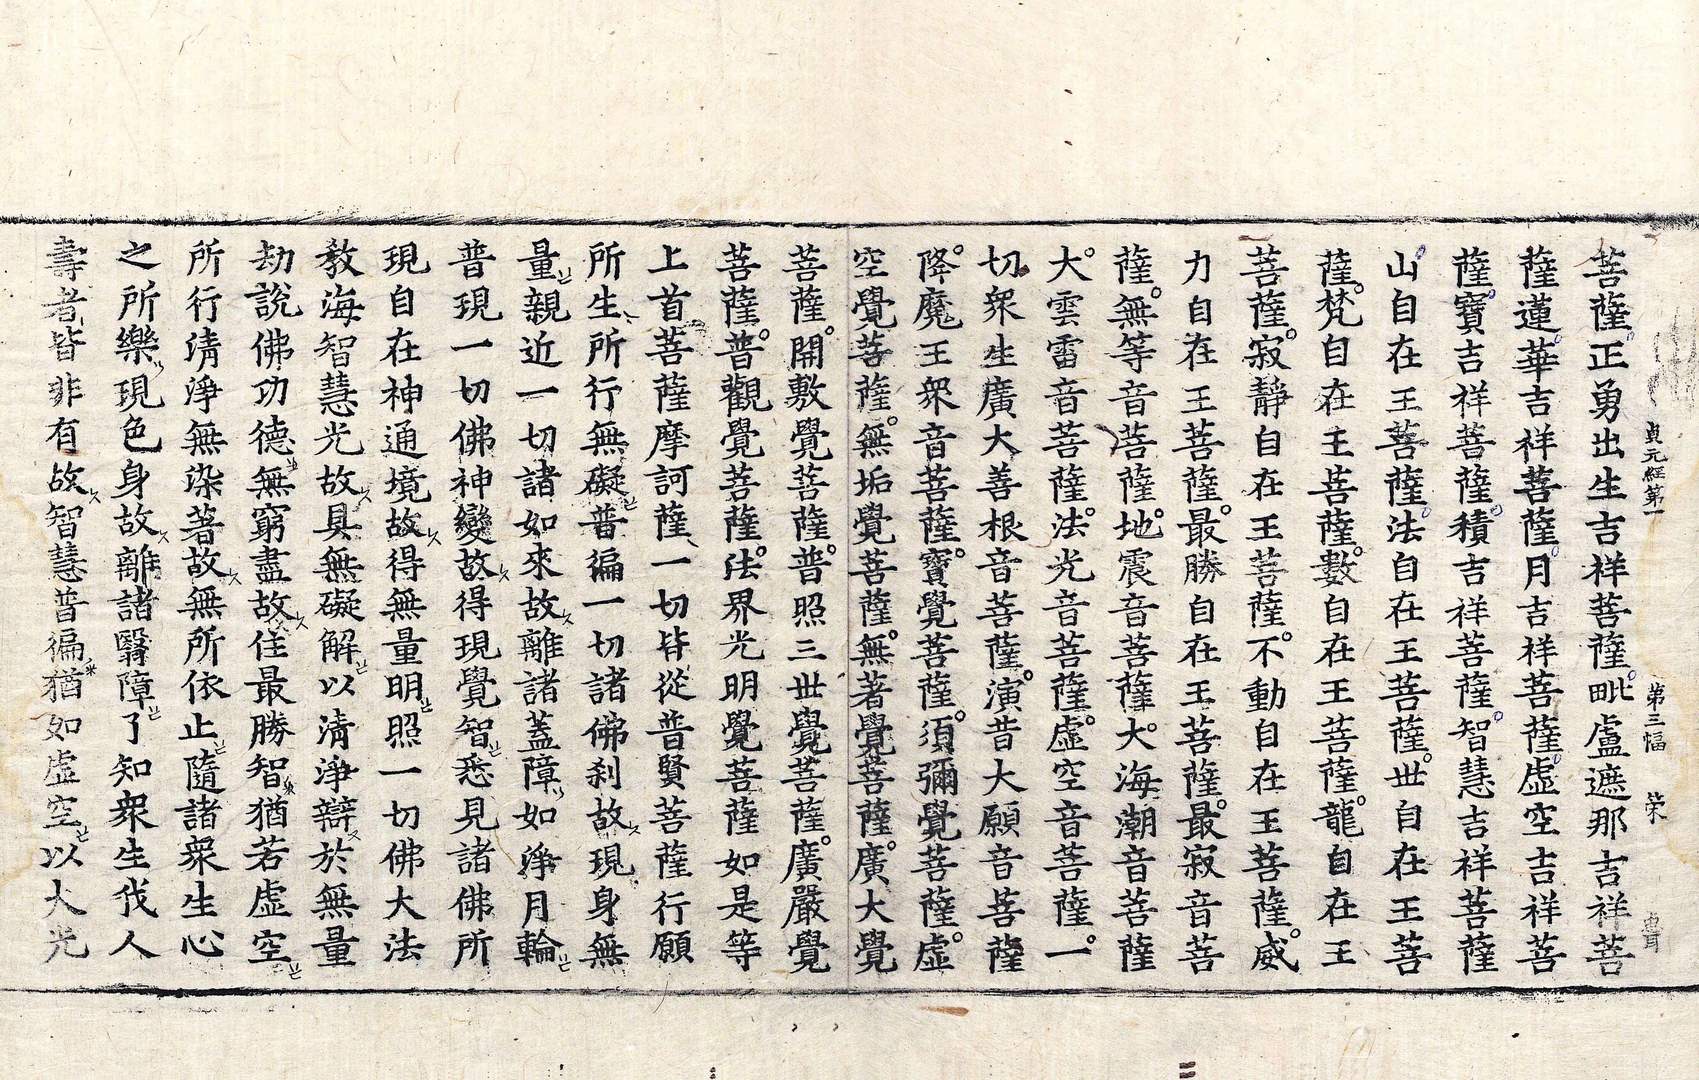 貞元經第一 第三幅 荣
菩薩正勇出生吉祥菩薩毗盧遮那吉祥菩
薩蓮華吉祥菩薩月吉祥菩薩虛空吉祥菩
薩寶吉祥菩薩積吉祥菩薩智慧吉祥菩薩
山自在王菩薩法自在王菩薩世自在王菩
薩梵自在王菩薩數自在王菩薩龍自在王
菩薩寂靜自在王菩薩不動自在王菩薩威
力自在王菩薩最勝自在王菩薩最寂音菩
薩無等音菩薩地震音菩薩大海潮音菩薩
大雲雷音菩薩法光音菩薩虛空音菩薩一
切衆生廣大善根音菩薩演昔大願音菩薩
降魔王衆音菩薩寶覺菩薩須彌覺菩薩虛
空覺菩薩無垢覺菩薩無著覺菩薩廣大覺
菩薩開敷覺菩薩普照三世覺菩薩廣嚴覺
菩薩普觀覺菩薩法界光明覺菩薩如是等
上首菩薩摩訶薩一切皆從普賢菩薩行願
所生所行無礙普徧一切諸佛刹故現身無
量親近一切諸如來故離諸蓋障如淨月輪
普現一切佛神變故得現覺智悉見諸佛所
現自在神通境故得無量明照一切佛大法
教海智慧光故具無礙解以清淨辯於無量
劫說佛功德無窮盡故住最勝智猶若虛空
所行清淨無染著故無所依止隨諸衆生心
之所樂現色身故離諸翳障了知衆生我人
壽者皆非有故智慧普徧猶如虛空以大光